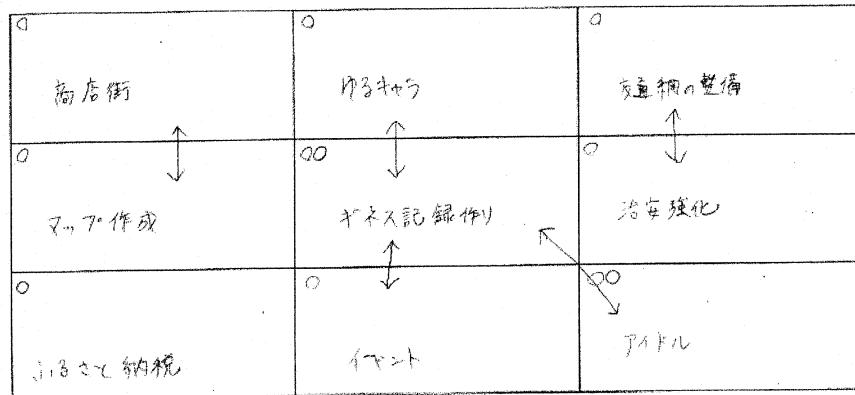 商店街
ゆるキャラ
交通網の整備
マップ作成
ギネス記録作り
治安強化
ふるさと納税
イベント
アイドル